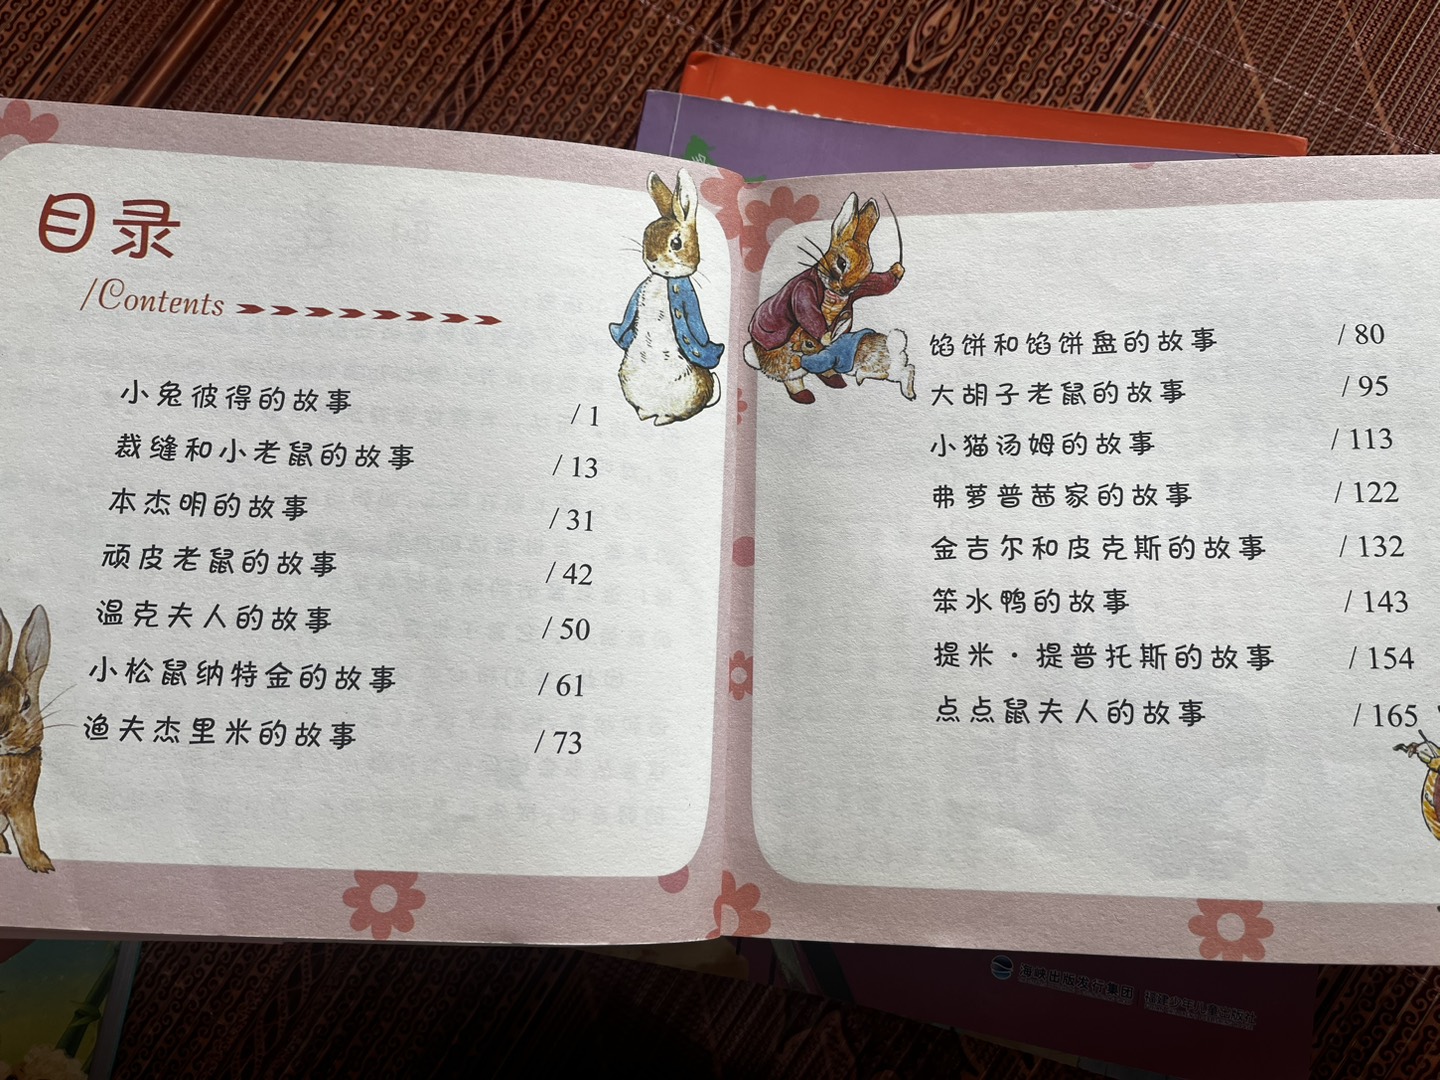 目录
/Contents
小兔彼得的故事 / 1
裁缝和小老鼠的故事 / 13
本杰明的故事 / 31
顽皮老鼠的故事 / 42
温克夫人的故事 / 50
小松鼠纳特金的故事 / 61
渔夫杰里米的故事 / 73
馅饼和馅饼盘的故事 / 80
大胡子老鼠的故事 / 95
小猫汤姆的故事 / 113
弗萝普茜家的故事 / 122
金吉尔和皮克斯的故事 / 132
笨水鸭的故事 / 143
提米·提普托斯的故事 / 154
点点鼠夫人的故事 / 165
海峡出版发行集团 福建少年儿童出版社